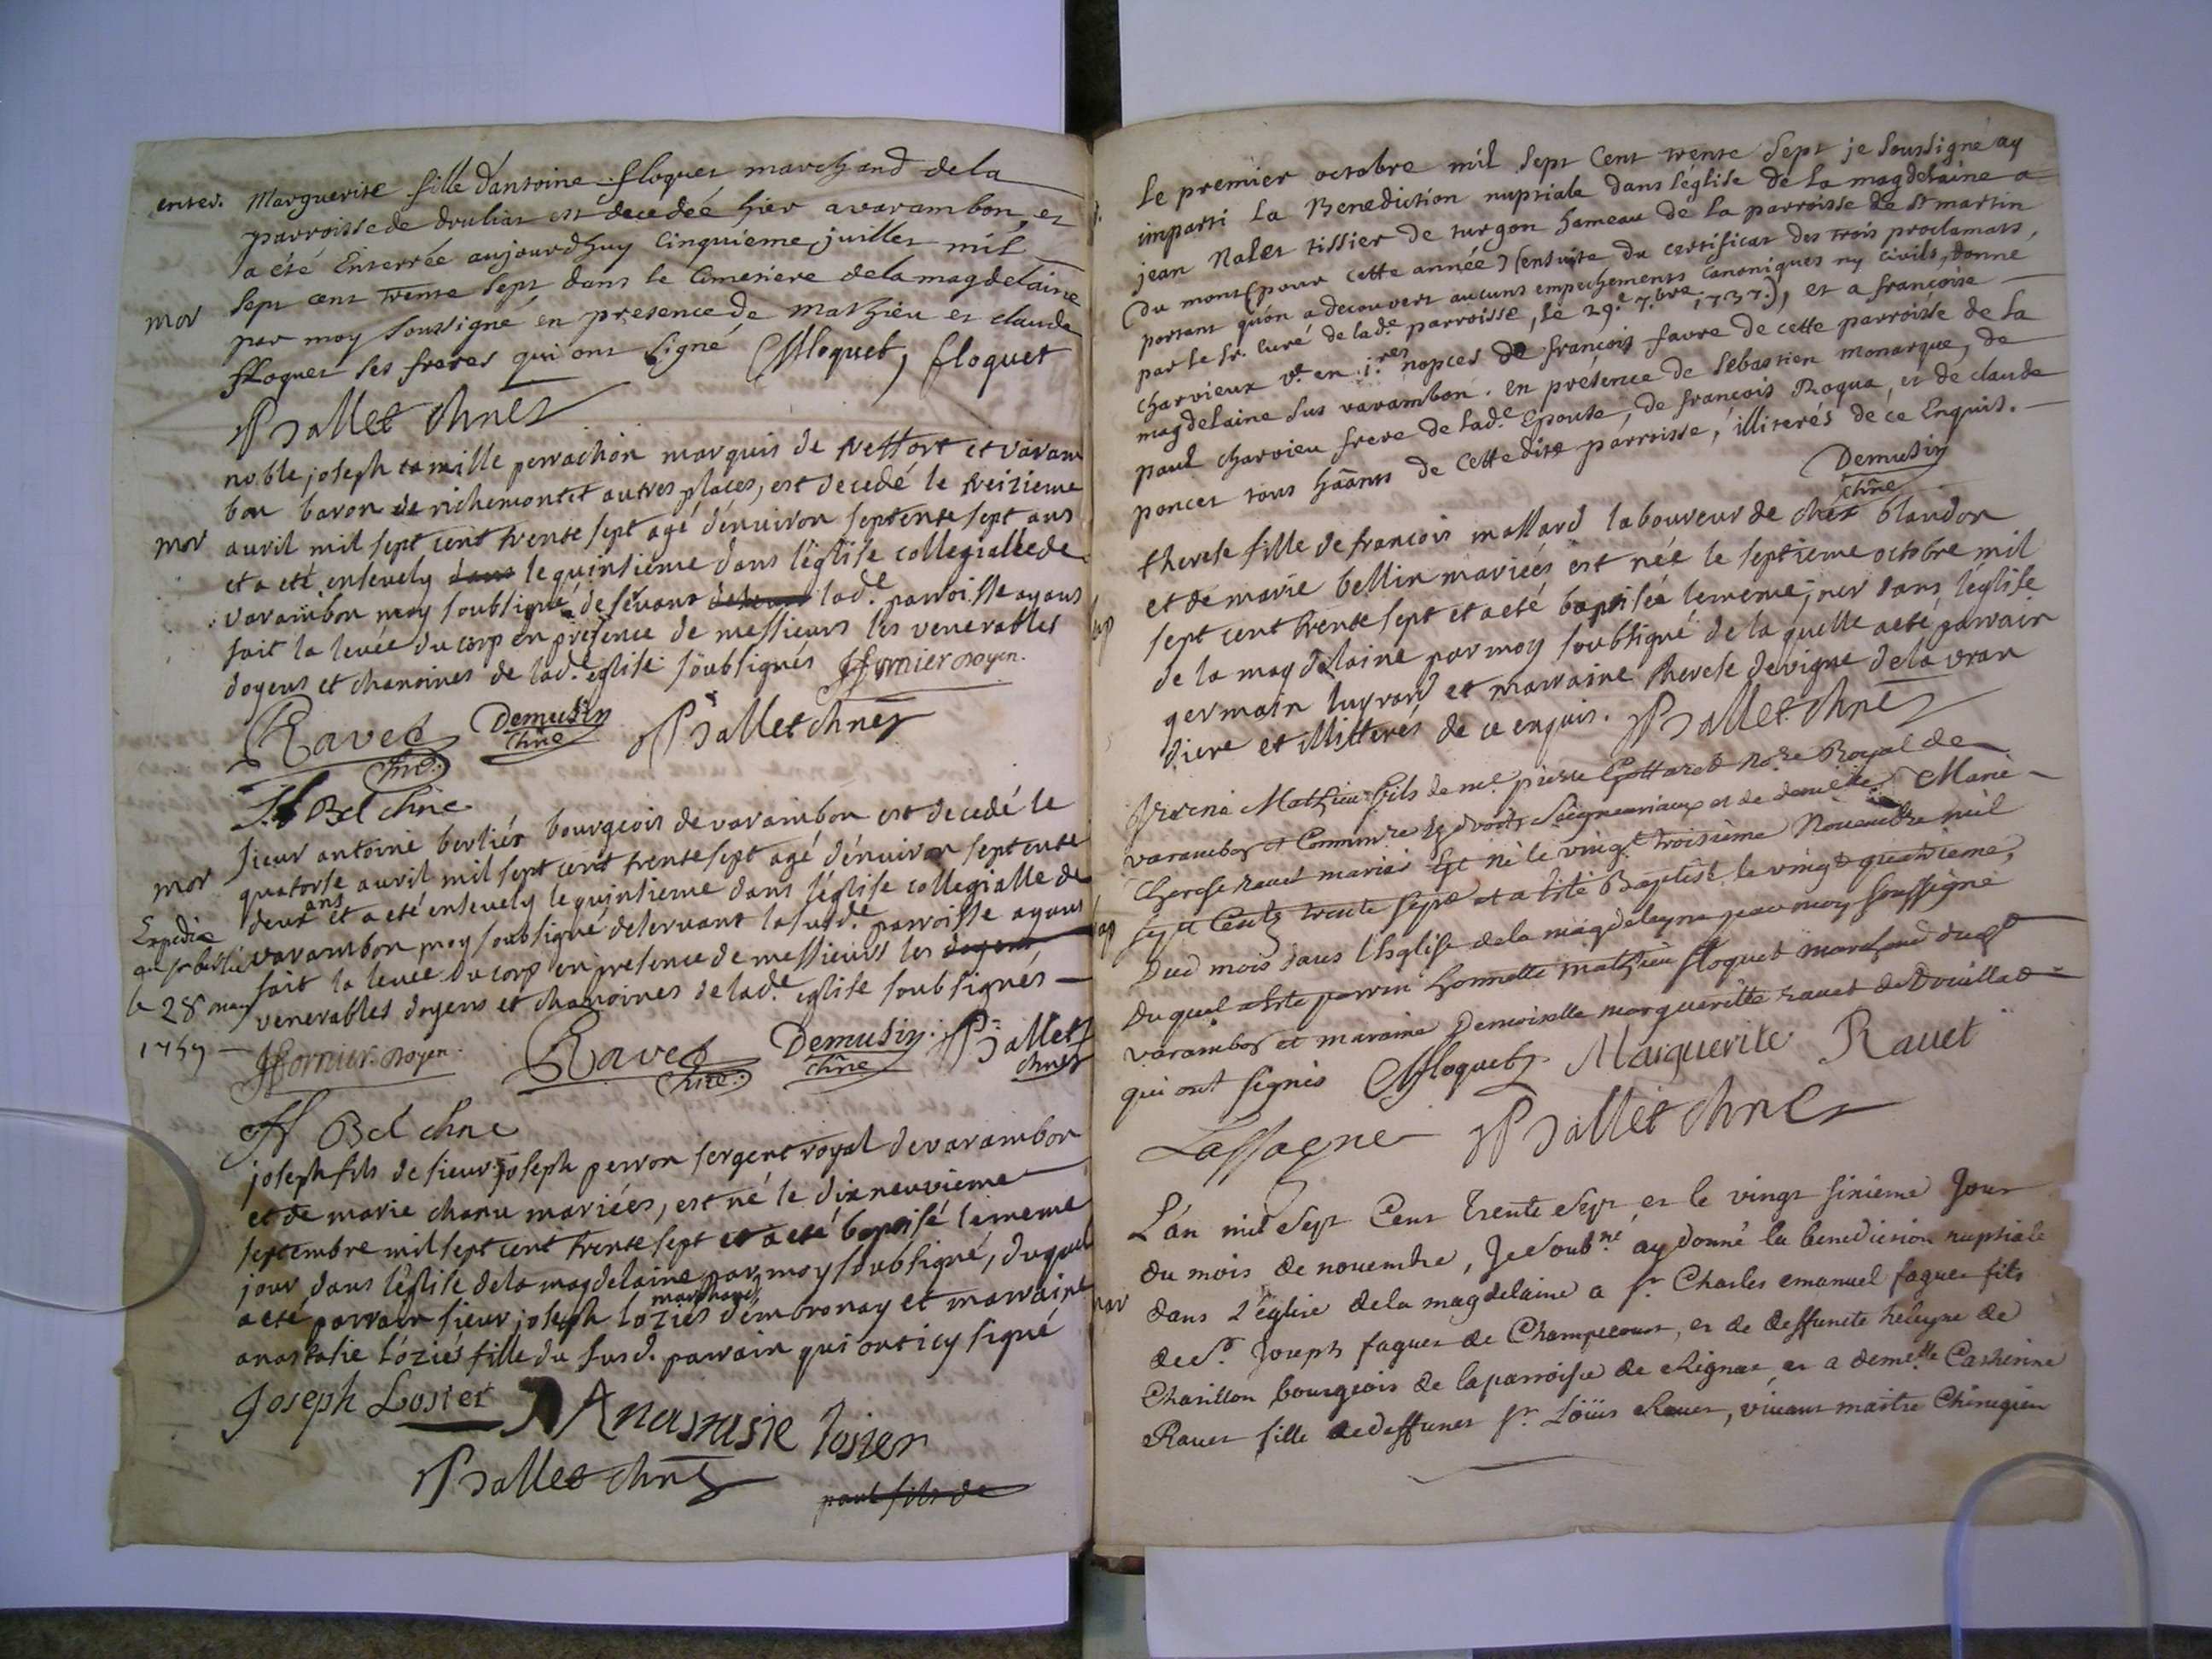 enter. Marguerite fille d'antoine floquet marchand de la
parroisse de druliat est decedéé hier a varambon, et
a été Enterrée aujourdhuy cinquieme juillet mil
mor sept cent trente sept dans le cimetiere de la magdelaine
par moy soussigné en presence de mathieu et claude
floquet ses freres qui ont signé Mfloquet, floquet
Ballet chne
noble joseph camille perrachon marquis de treffort et varam
bon baron de richemont et autres places, est decedé le treizieme
mor avril mil sept cent trente sept agé d'enuiron septente sept ans
et a eté ensevely dans le quinsieme dans l'église collegialle de
varambon moy soubsigné deservant lad.e parroisse ayant
fait la levée du corp en presence de messieurs les venerables
doyens et chanoines de lad.e eglise soubsignés ffornier doyen.
Ravet chne. Demusin chne Ballet chne
Bel chne
Sieur antoine berlier bourgeois de varambon est decedé le
mor quatorse avril mil sept cent trente sept agé d'enuiron septente
deux ans et a eté ensevely le quinsieme dans l'église collegialle de
Expedié varambon, moy soubsigné deservant la susd.e parroisse ayant
fait la levée du corp en presence de messieurs les doyens
le 28 may venerables doyens et chanoines de lad.e eglise soubsignés
ffornier doyen. Ravet chne. Demusin. chne Ballet chne
Bel chne
joseph fils de sieur joseph perron sergent royal de varambon
et de marie chanu mariées, est né le dixneuvieme
septembre mil sept cent trente sept et a eté baptisé le meme
jour dans l'église de la magdelaine par moy soubsigné, duquel
a eté parrain sieur joseph loziés marchand d'embronay et marraine
anastasie loziés fille du susd. parrain qui ont icy signé
Joseph Losier Anastasie losier
Ballet chne
paul fils de
Le premier octobre mil sept Cent trente sept je soussigné ay
imparti La Benediction nuptiale dans l'église de la magdelaine a
jean Nalet tissier de turgon hameau de la parroisse de St martin
Du mont (pour cette année) (ensuite du certificat des trois proclamats,
portant qu'on a decouvert aucuns empechements canoniques ny civils, donné
par le sr. Curé de lad.e parroisse, le 29.e 7.bre 1737.), et a françoise
charvieux v.e en 1.res nopces de françois favre de cette parroisse de la
magdelaine sus varambon. en présence de Sébastien monarque, de
paul charvieu frere de lad.e Epouse, de françois Roqua, et de claude
poncet tous hãants de cette dite parroisse, illiterés de ce Enquis.
Demusin chne
therese fille de francois massard laboureur de chez blandon
et de marie bellin mariées est néé le septieme octobre mil
bap sept cent trente sept et a eté baptisée le meme jour dans l'église
de la magdelaine par moy soubsigné de la quelle a eté parrain
germain luyrard et marraine therese devigne de la vran
diere et illitterés de ce enquis. Ballet chne
Mathieu fils de me. pierre Gottaret no.re Royal de
varambon et Comm.re des droits Seigneuriaux et de demlle Marie
therese ravet mariés Est né le vingt troisieme Nouembre mil
bap sept Cents trente sept et a été Baptisé le vingt quatrieme,
Dud mois dans l'Eglise de la magdeleyne par moy soussigné
Duquel a été parrin honnette mathieu floquet marchand dud
varambon et maraine Demoiselle marguerite ravet de Douillat
qui ont signés Mfloquet. Marguerite Ravet
Lassagne Ballet chne
L'an mil Sept Cent Trente Sept et le vingt sixieme Jour
du mois de novembre, Je Soub.né ay donné la benediction nuptiale
mar dans l'église de la magdelaine a sr. Charles emanuel faguet fils
de Sr. Joseph faguet de Champecourt, et de deffuncte heleyne de
Charillon bourgeois de la parroisse de Rignat et a demelle Catherine
Ravet fille de deffunct sr. Loüis Ravet, vivant maitre Chirurgien